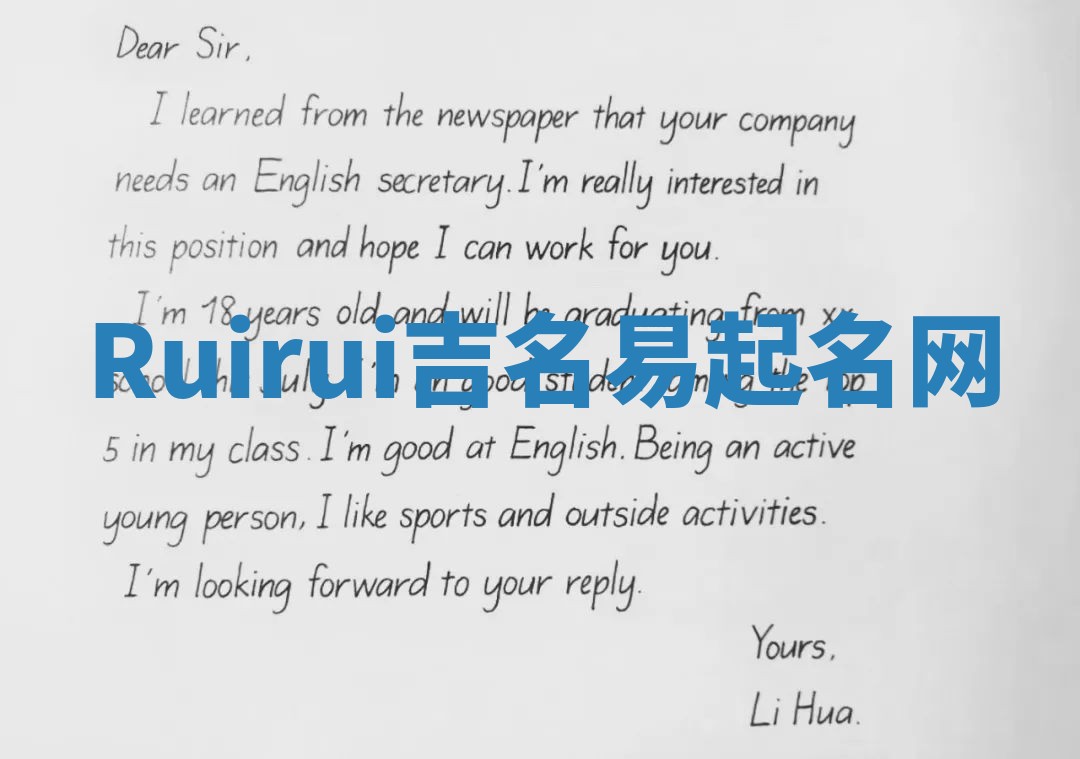 Dear Sir,
I learned from the newspaper that your company
needs an English secretary. I'm really interested in
this position and hope I can work for you.
I'm 18 years old and will be graduating from xx
Ruirui吉名易起名网
school this July. I'm an good student among the top
5 in my class. I'm good at English. Being an active
young person, I like sports and outside activities.
I'm looking forward to your reply.
Yours,
Li Hua.